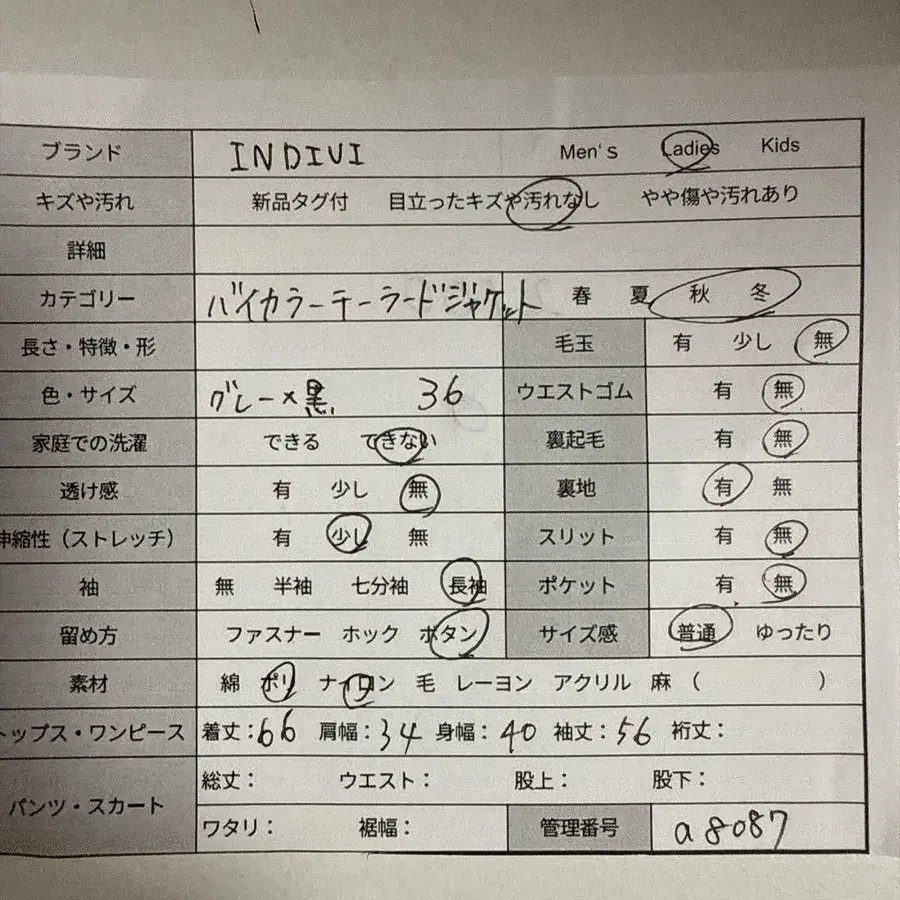 ブランド INDIVI Men's Ladies Kids
キズや汚れ 新品タグ付 目立ったキズや汚れなし やや傷や汚れあり
詳細
カテゴリー バイカラーテーラードジャケット 春 夏 秋 冬
長さ・特徴・形 毛玉 有 少し 無
色・サイズ グレー×黒 36 ウエストゴム 有 無
家庭での洗濯 できる できない 裏起毛 有 無
透け感 有 少し 無 裏地 有 無
伸縮性（ストレッチ） 有 少し 無 スリット 有 無
袖 無 半袖 七分袖 長袖 ポケット 有 無
留め方 ファスナー ホック ボタン サイズ感 普通 ゆったり
素材 綿 ポリ ナイロン 毛 レーヨン アクリル 麻 （ ）
トップス・ワンピース 着丈：66 肩幅：34 身幅：40 袖丈：56 裄丈：
パンツ・スカート 総丈： ウエスト： 股上： 股下：
ワタリ： 裾幅： 管理番号 a8087